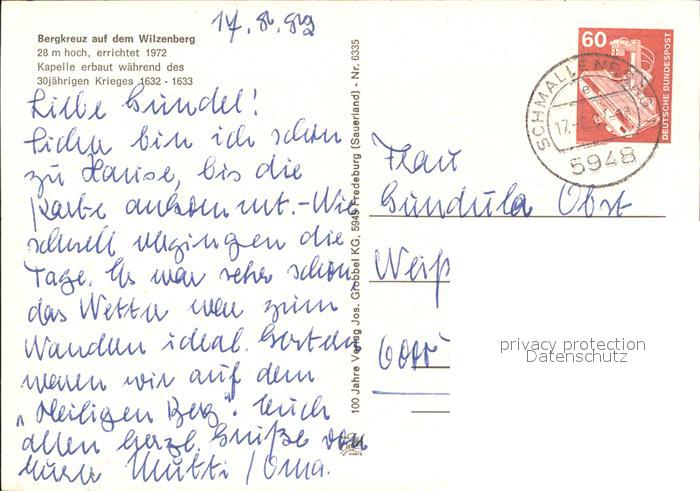 Bergkreuz auf dem Wilzenberg
28 m hoch, errichtet 1972
Kapelle erbaut während des
30jährigen Krieges 1632 - 1633
17. 8. 89
Liebe Gundel!
Sicher bin ich schon
zu Hause, bis die
Karte ankommt. - Wie
schnell vergingen die
Tage. Es war sehr schön
das Wetter war zum
Wandern ideal. Gestern
waren wir auf dem
"Heiligen Berg". Euch
allen herzl. Grüße von
Eurer Mutti / Oma.
100 Jahre Verlag Jos. Grobbel KG, 5949 Fredeburg (Sauerland) - Nr. 6335
60
DEUTSCHE BUNDESPOST
SCHMALLENBERG
5948
Frau
Gundula Obst
Weiß
privacy protection
Datenschutz